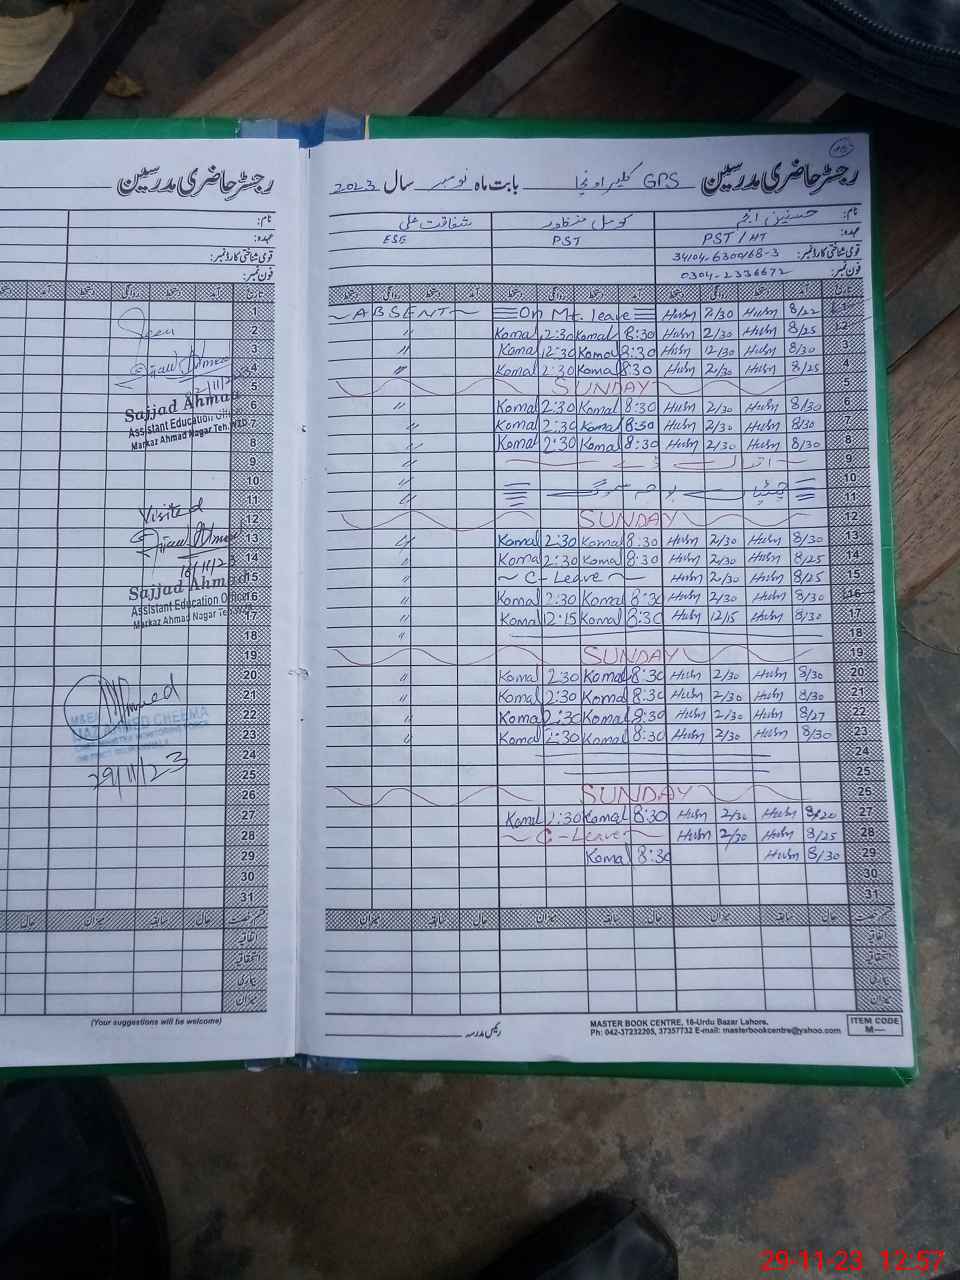 رجسٹر حاضری مدرسین
رجسٹر حاضری مدرسین GPS کلیر اونچا بابت ماہ نومبر سال 2023
نام: حسنین انجم کومل منظور شفاقت علی
عہدہ: PST / HT PST ESE
قومی شناختی کارڈ نمبر: 34104-6300168-3
فون نمبر: 0304-2336672
تاریخ آمد دستخط روانگی دستخط آمد دستخط روانگی دستخط آمد دستخط روانگی دستخط
1 8/22 Husn 2/30 Husn On Mt. leave ABSENT
2 8/25 Husn 2/30 Husn 8:30 Komal 2:30 Komal "
3 8/30 Husn 12/30 Husn 8:30 Komal 12:30 Komal "
4 8/25 Husn 2/30 Husn 8:30 Komal 2:30 Komal "
5 SUNDAY
6 8/30 Husn 2/30 Husn 8:30 Komal 2:30 Komal "
7 8/30 Husn 2/30 Husn 8:30 Komal 2:30 Komal "
8 8/30 Husn 2/30 Husn 8:30 Komal 2:30 Komal "
9 اقبال ڈے "
10 "
11 چھٹیاں بوجہ سموگ "
12 SUNDAY
13 8/30 Husn 2/30 Husn 8:30 Komal 2:30 Komal "
14 8/25 Husn 2/30 Husn 8:30 Komal 2:30 Komal "
15 8/25 Husn 2/30 Husn C-Leave "
16 8/30 Husn 2/30 Husn 8:30 Komal 2:30 Komal "
17 8/30 Husn 12/15 Husn 8:30 Komal 12:15 Komal "
18 "
19 SUNDAY
20 8/30 Husn 2/30 Husn 8:30 Komal 2:30 Komal "
21 8/30 Husn 2/30 Husn 8:30 Komal 2:30 Komal "
22 8/27 Husn 2/30 Husn 8:30 Komal 2:30 Komal "
23 8/30 Husn 2/30 Husn 8:30 Komal 2:30 Komal "
24
25
26 SUNDAY
27 8/20 Husn 2/30 Husn 8:30 Komal 2:30 Komal
28 8/25 Husn 2/30 Husn C-Leave
29 8/30 Husn 8:30 Komal
30
31
قسم رخصت حال سابقہ میزان حال سابقہ میزان حال سابقہ میزان
اتفاقیہ
استحقاقیہ
بیماری
میزان
رئیس مدرسہ
MASTER BOOK CENTRE, 16-Urdu Bazar Lahore,
Ph: 042-37232205, 37357732 E-mail: masterbookcentre@yahoo.com
ITEM CODE
M—
نام:
عہدہ:
قومی شناختی کارڈ نمبر:
فون نمبر:
Seen
Sajjad Ahmad
Assistant Education Officer
Markaz Ahmad Nagar Teh. WZD
Visited
Sajjad Ahmad
Assistant Education Officer
Markaz Ahmad Nagar Teh. WZD
CHEEMA
29/11/23
(Your suggestions will be welcome)
29-11-23 12:57